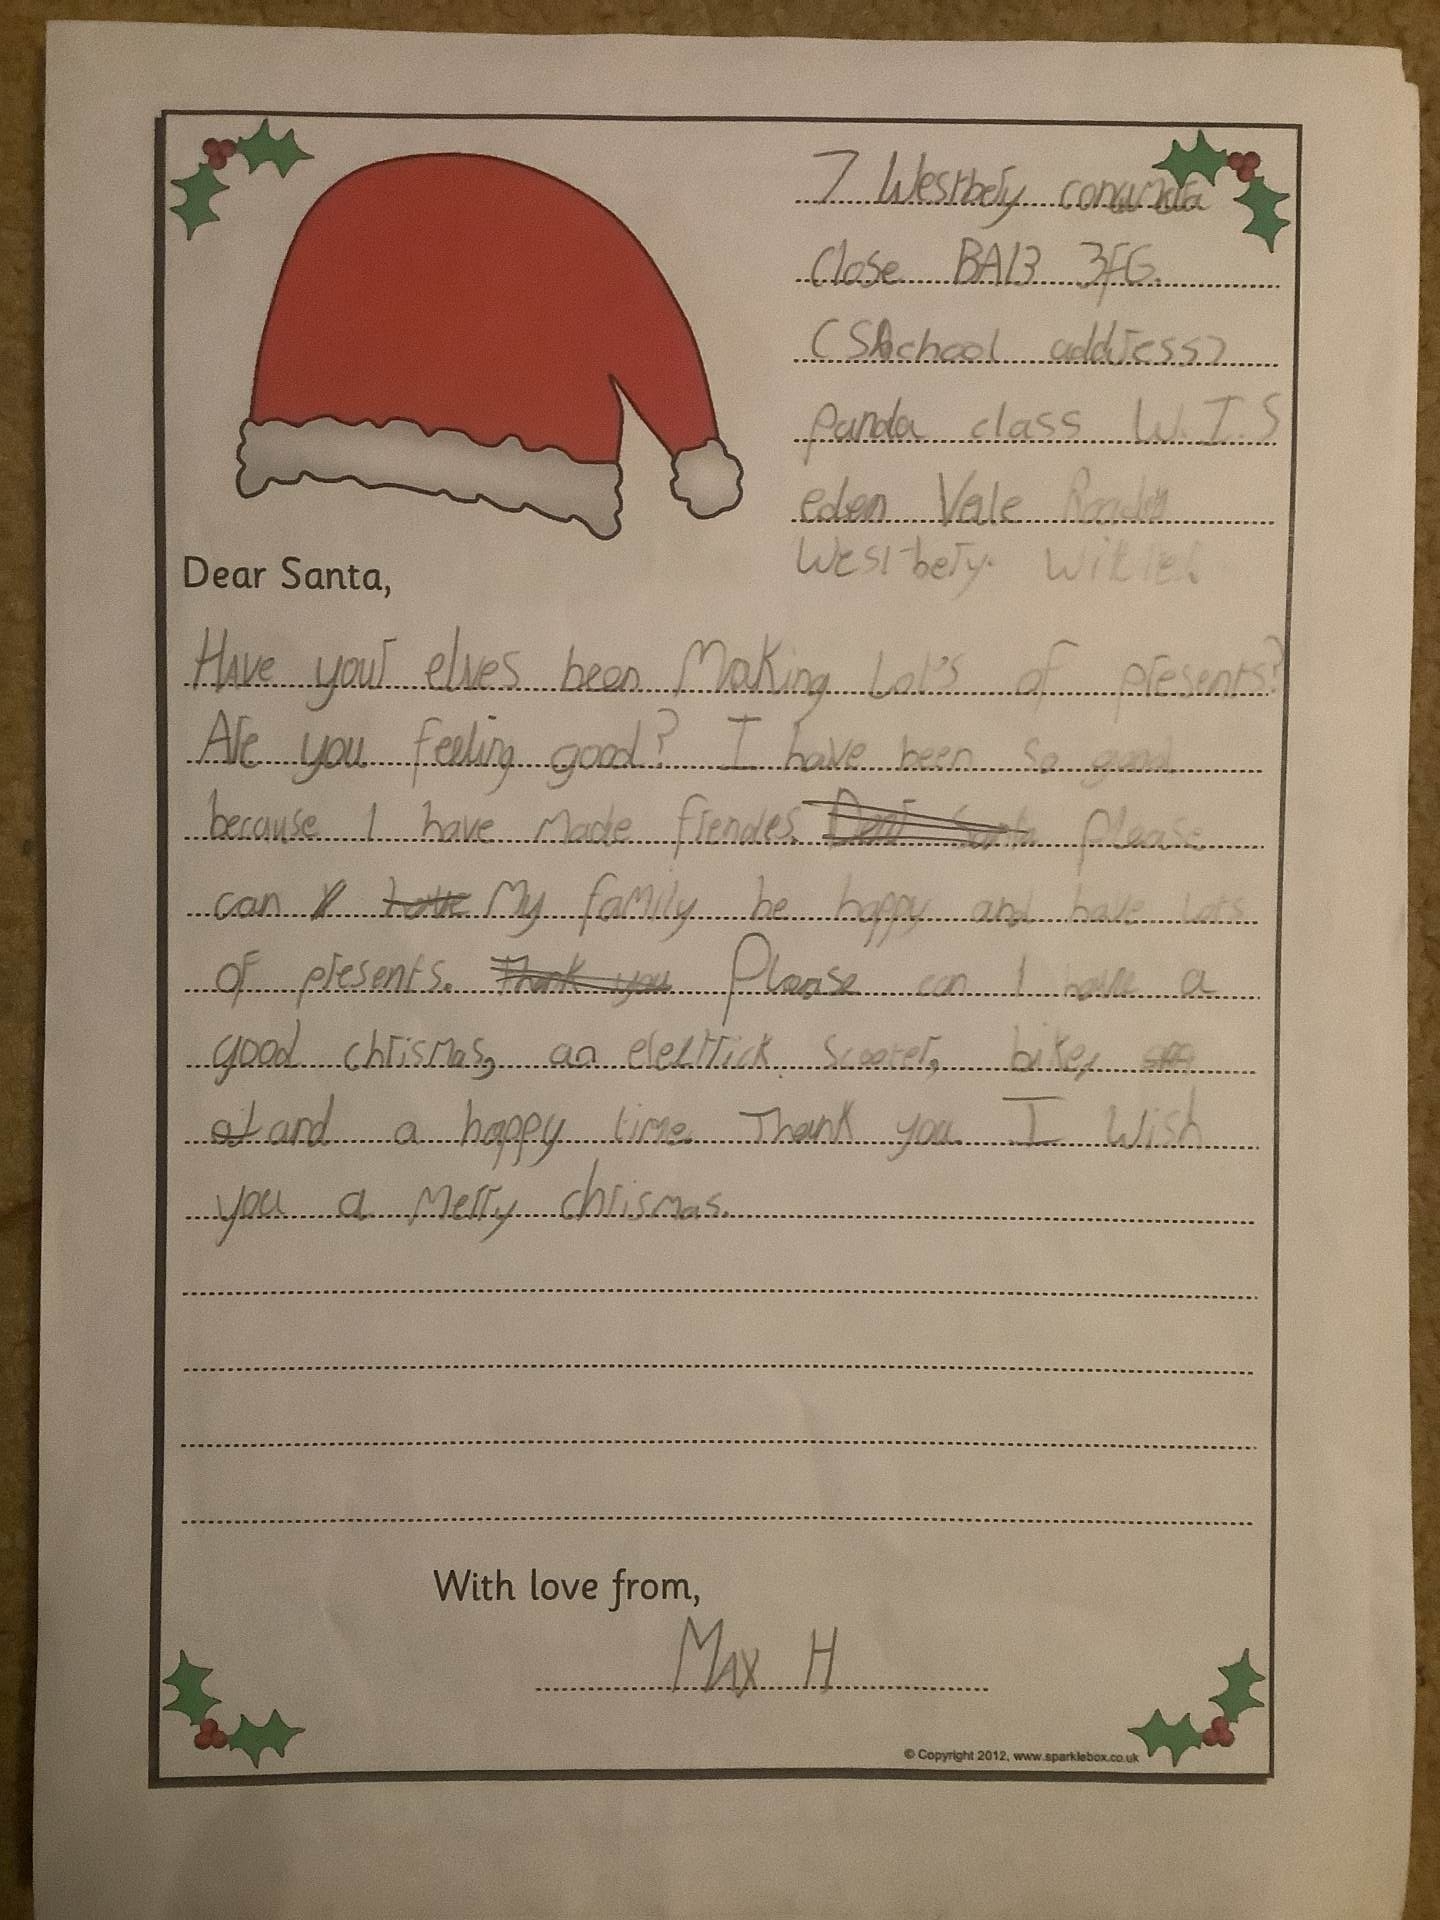 7 Westbery
close BA13 3FG.
(School address)
panda class W.I.S
eden Vale
Westbery.
Dear Santa,
Have your elves been Making Lot's of presents?
Are you feeling good? I have been so good
because I have made friendes. Dear Santa Please
can I have My family be happy and have Lots
of presents. Thank you Please can I have a
good chrismas, an elecktrick scooter, bike,
and a happy time. Thank you. I Wish
you a Merry chrismas.
With love from,
Max H
© Copyright 2012, www.sparklebox.co.uk